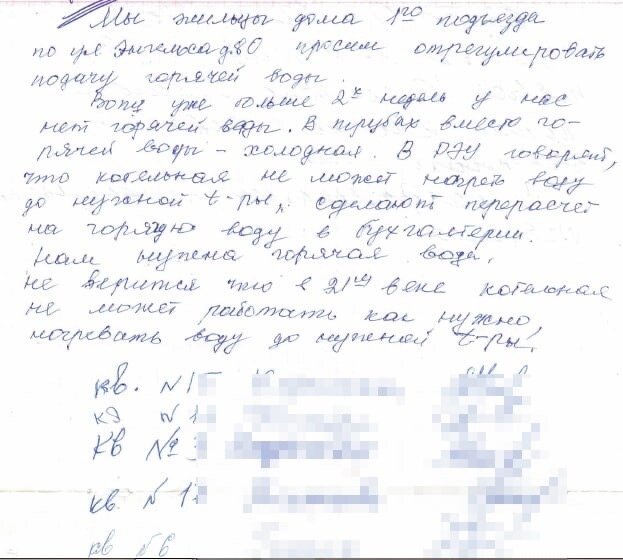 Мы жильцы дома 1го подъезда
по ул Энгельса д.80 просим отрегулировать
подачу горячей воды.
Вот уже больше 2х недель у нас
нет горячей воды. В трубах вместо го-
рячей воды - холодная. В РЭУ говорят,
что котельная не может нагреть воду
до нужной t-ры, сделают перерасчет
на горячую воду в бухгалтерии.
Нам нужна горячая вода.
не верится что в 21ом веке котельная
не может работать как нужно
нагревать воду до нужной t-ры!
кв. №1
кв №1
КВ №
кв. № 1
кв №6